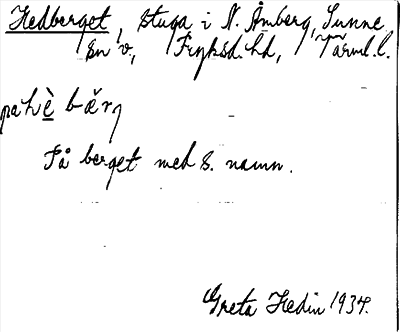 Hedberget, stuga i N. Åmberg, Sunne
sn o., Fryksd. hd, Värml. l.
pa hè bærg
På berget med s. namn.
Greta Hedin 1934.